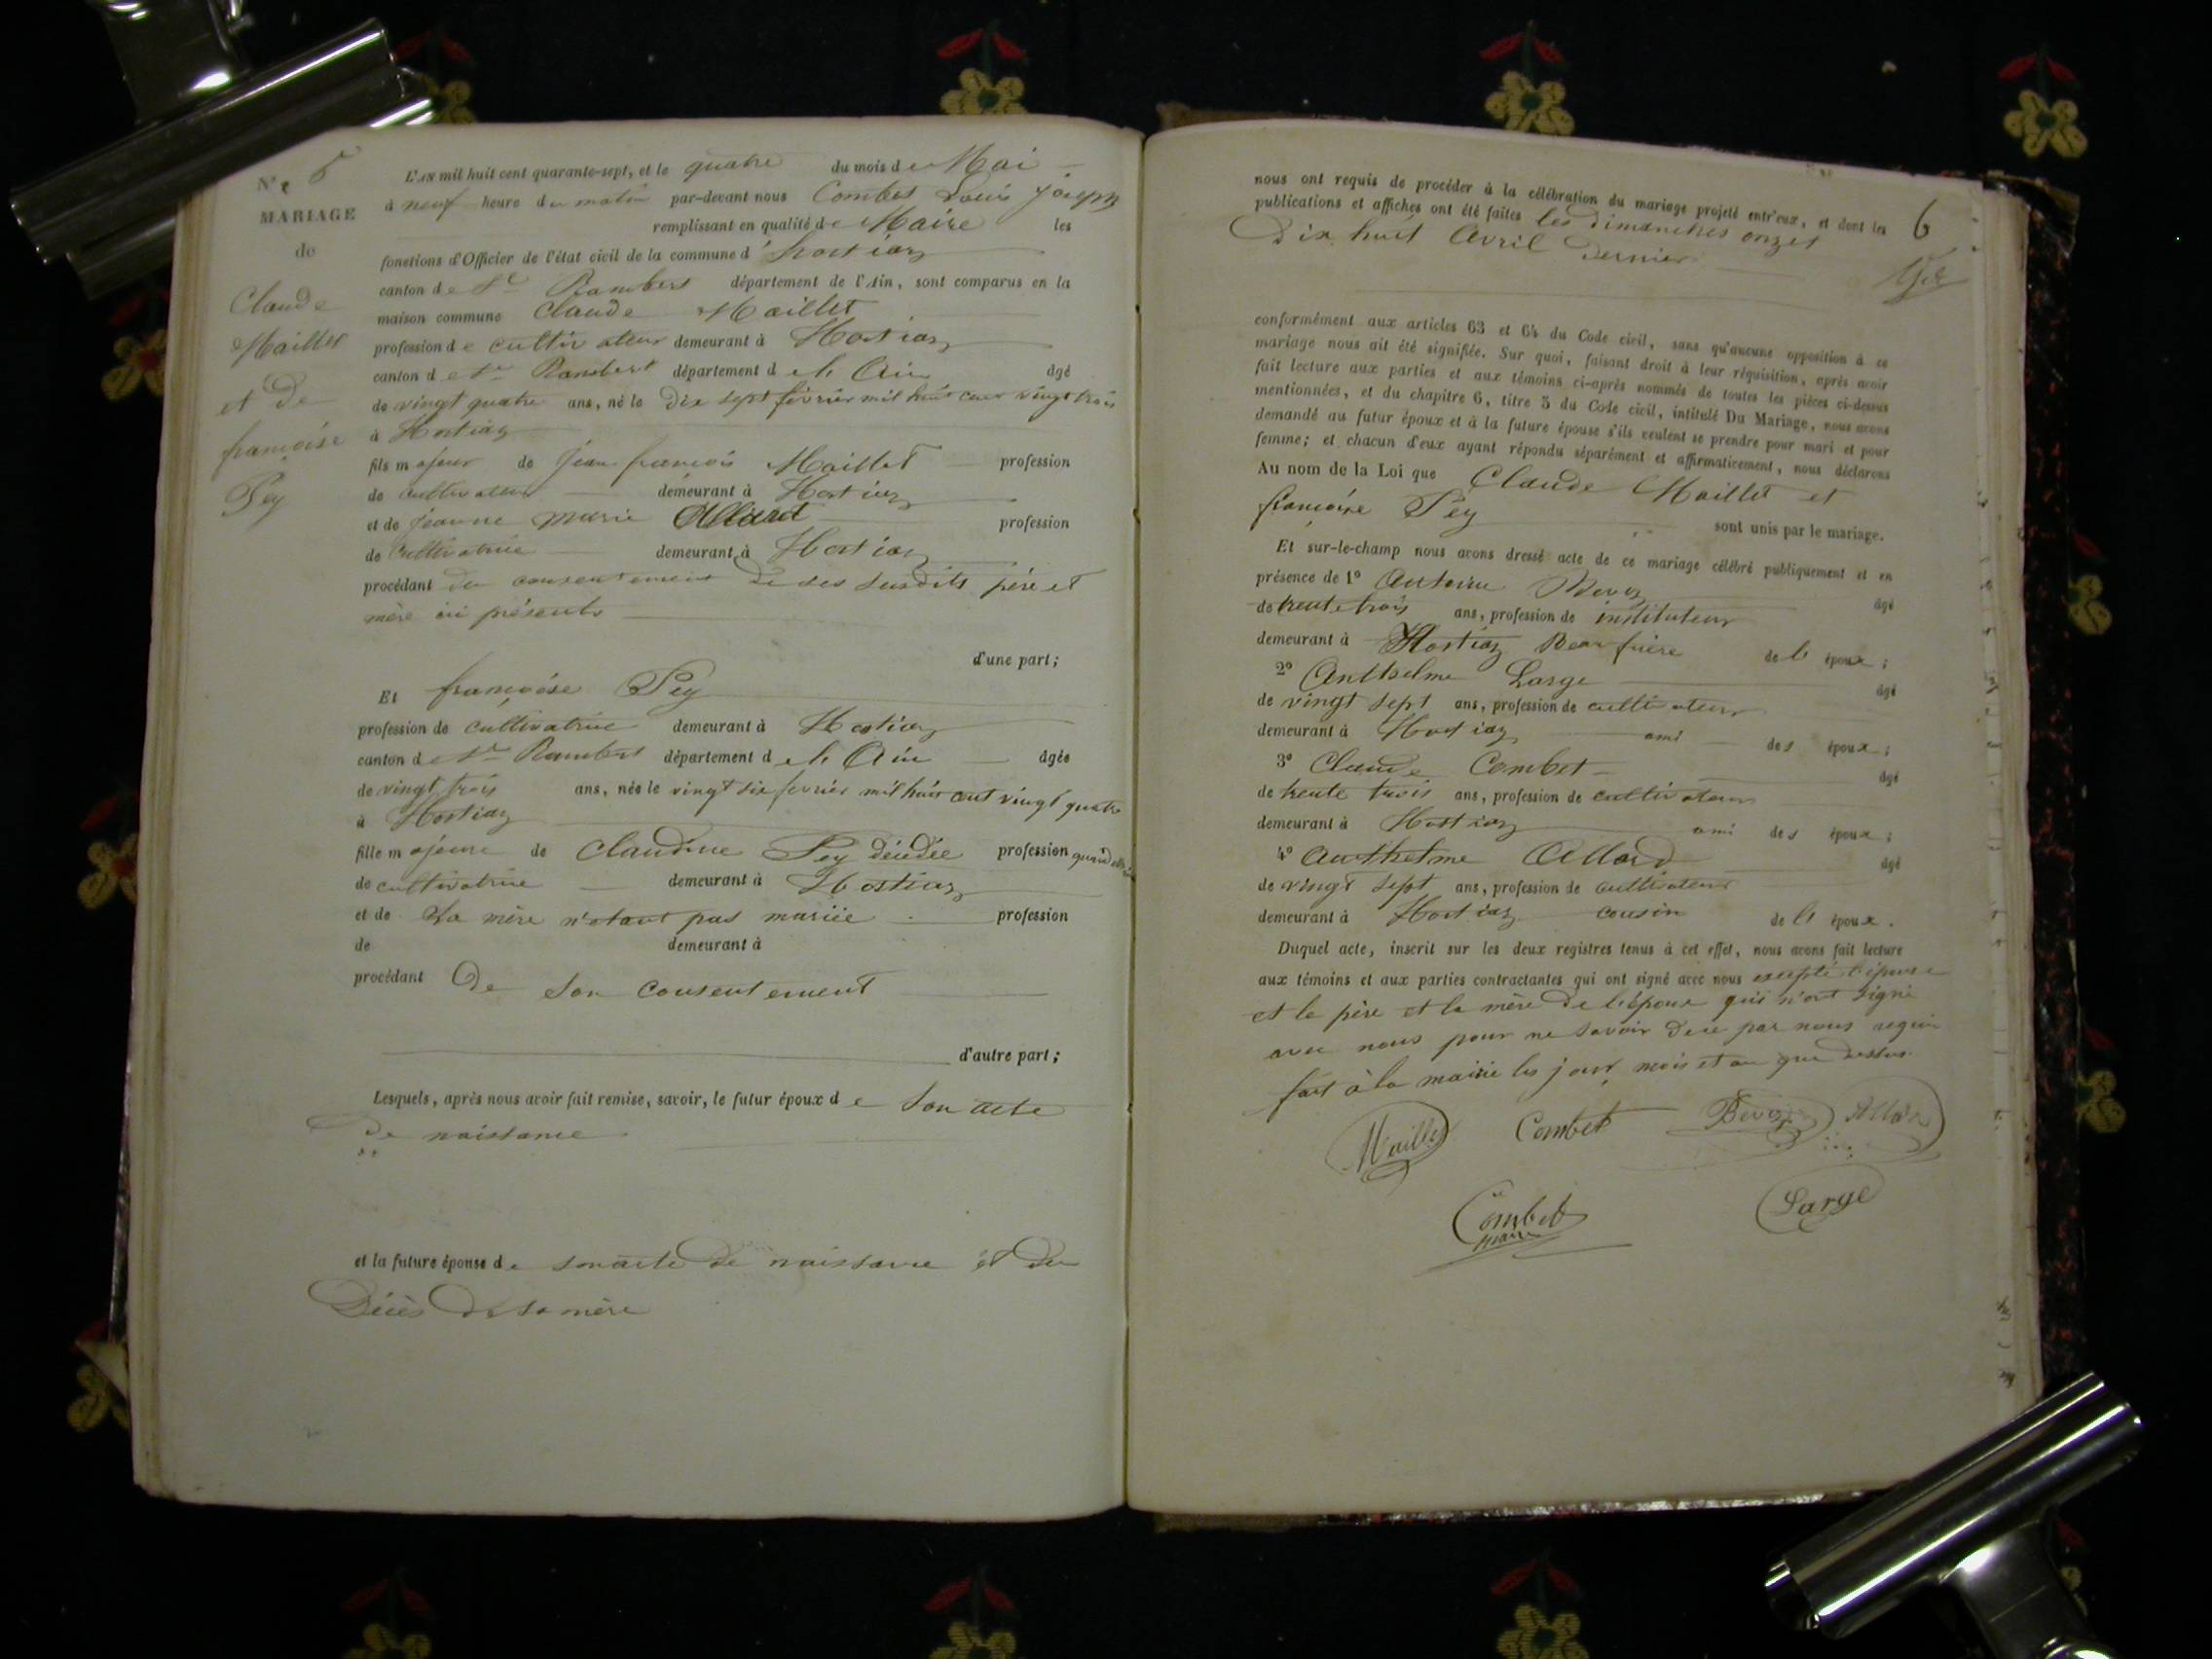 N.º 5
MARIAGE
de
Claude
Maillet
et de
françoise
Pey
L'AN mil huit cent quarante-sept, et le quatre du mois de Mai
à neuf heure du matin par-devant nous Combet Louis Joseph
remplissant en qualité de Maire les
fonctions d'Officier de l'état civil de la commune d'hostiaz
canton de St Rambert département de l'Ain, sont comparus en la
maison commune Claude Maillet
profession de cultivateur demeurant à Hostiaz
canton de St Rambert département de l'Ain âgé
de vingt quatre ans, né le dix sept février mil huit cent vingt trois
à Hostiaz
fils majeur de Jean françois Maillet profession
de cultivateur demeurant à Hostiaz
et de jeanne marie Allard profession
de Cultivatrice demeurant à Hostiaz
procédant du consentement de ses susdits père et
mère ici présents
d'une part;
Et françoise Pey
profession de cultivatrice demeurant à Hostiaz
canton de St Rambert département de l'Ain âgée
de vingt trois ans, née le vingt six fevrier mil huit cent vingt quatre
à Hostiaz
fille majeure de Claudine Pey décédée profession quand elle
de cultivatrice demeurant à Hostiaz
et de La mère n'étant pas mariée profession
de demeurant à
procédant De son consentement
d'autre part;
Lesquels, après nous avoir fait remise, savoir, le futur époux de son acte
de naissance
et la future épouse de son acte de naissance et du
Décès de sa mère
6
nous ont requis de procéder à la célébration du mariage projeté entr'eux, et dont les
publications et affiches ont été faites les dimanches onze et
Dix huit Avril dernier
conformément aux articles 63 et 64 du Code civil, sans qu'aucune opposition à ce
mariage nous ait été signifiée. Sur quoi, faisant droit à leur réquisition, après avoir
fait lecture aux parties et aux témoins ci-après nommés de toutes les pièces ci-dessus
mentionnées, et du chapitre 6, titre 5 du Code civil, intitulé Du Mariage, nous avons
demandé au futur époux et à la future épouse s'ils veulent se prendre pour mari et pour
femme; et chacun d'eux ayant répondu séparément et affirmativement, nous déclarons
Au nom de la Loi que Claude Maillet et
françoise Pey sont unis par le mariage.
Et sur-le-champ nous avons dressé acte de ce mariage célébré publiquement et en
présence de 1º Antoine Bevoz âgé
de trente trois ans, profession de instituteur
demeurant à Hostiaz Beau frère de l'époux;
2º Anthelme Large âgé
de vingt sept ans, profession de cultivateur
demeurant à Hostiaz ami des époux;
3º Claude Combet âgé
de trente trois ans, profession de cultivateur
demeurant à Hostiaz ami des époux;
4º Anthelme Allard âgé
de vingt sept ans, profession de cultivateur
demeurant à Hostiaz cousin de l'époux.
Duquel acte, inscrit sur les deux registres tenus à cet effet, nous avons fait lecture
aux témoins et aux parties contractantes qui ont signé avec nous excepté l'épouse
et le père et la mère de l'époux qui n'ont signé
avec nous pour ne savoir de ce par nous requis
fait à la mairie les jour, mois et an que dessus.
Maillet Combet Bevoz Allard
Combet
maire
Large